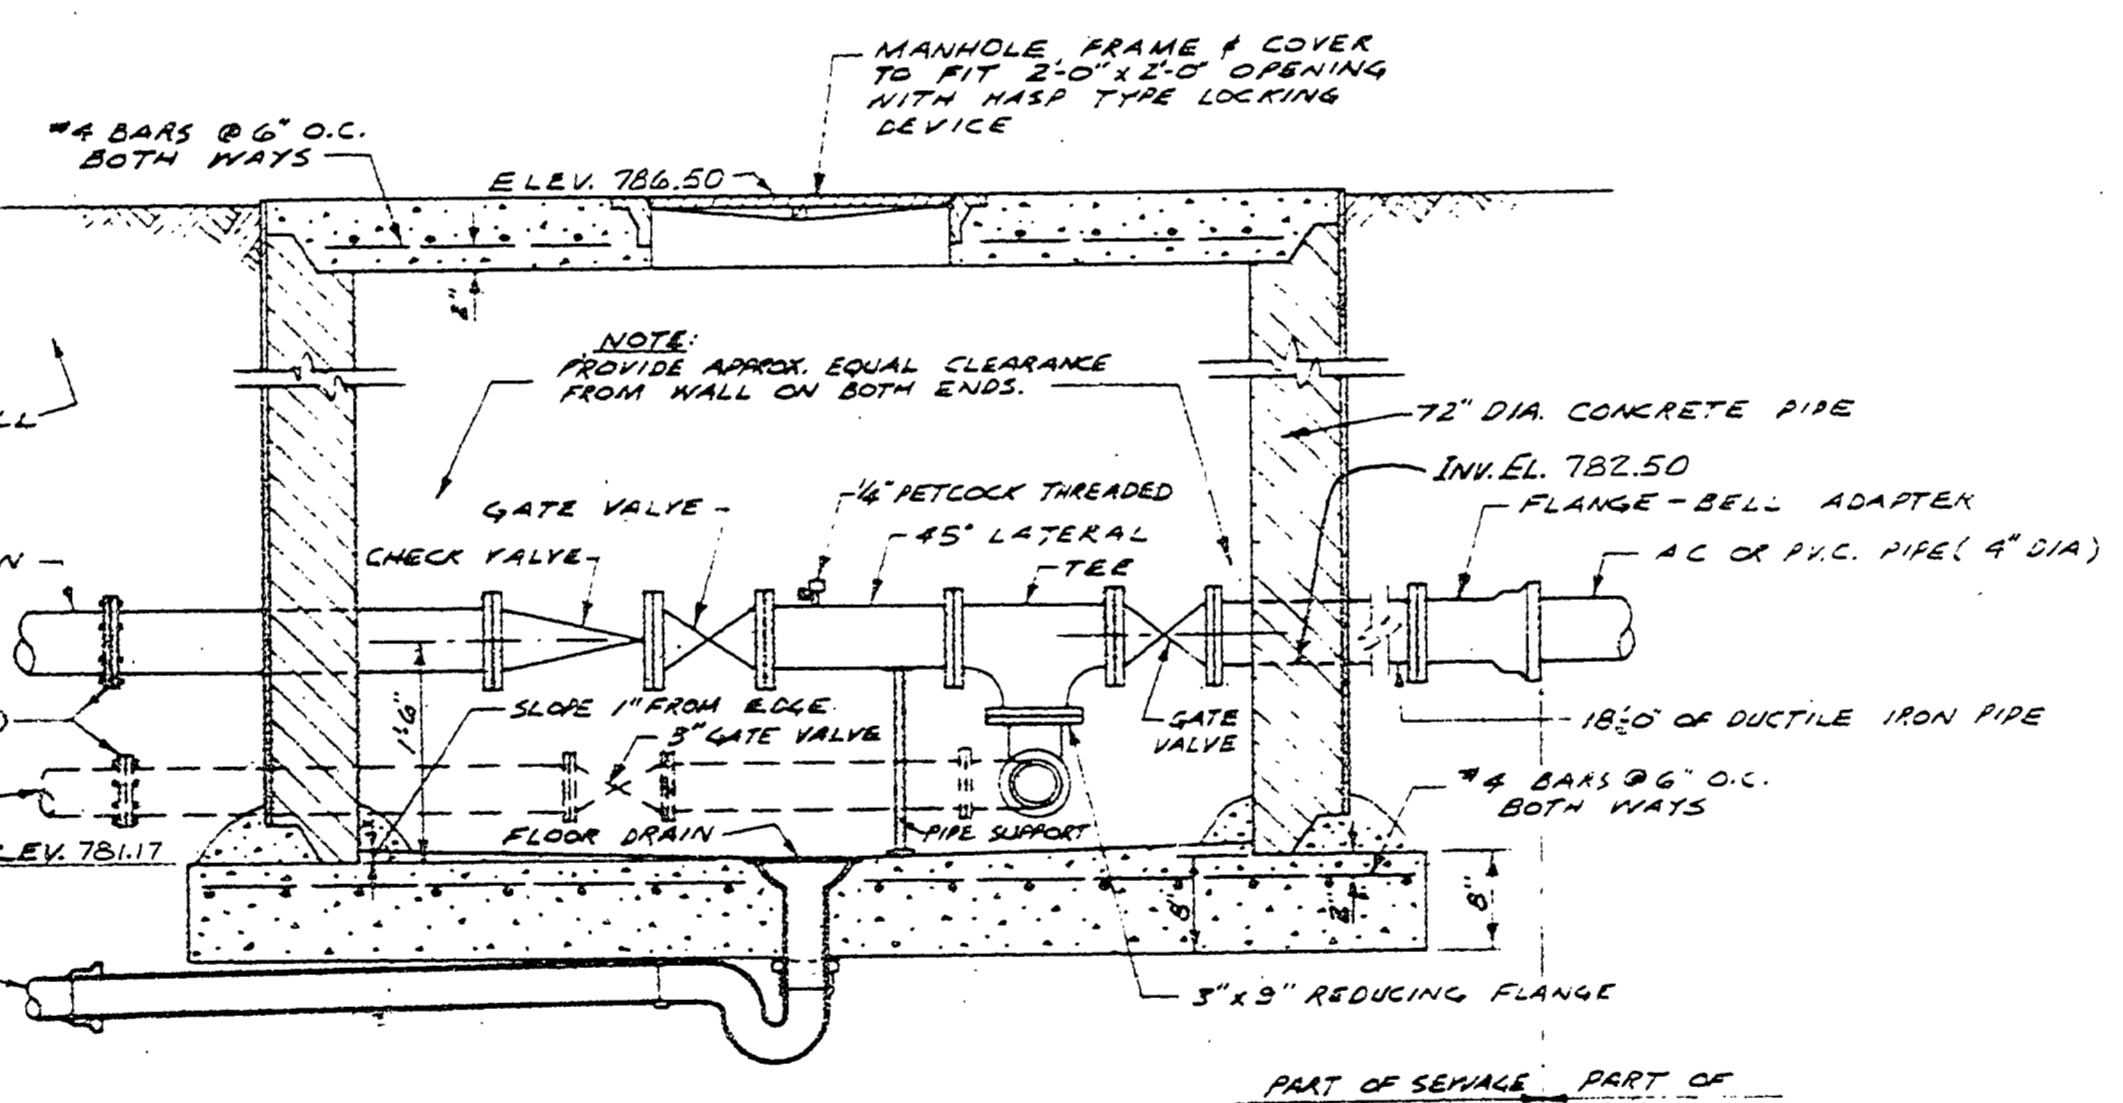 MANHOLE FRAME & COVER
TO FIT 2'-0" x 2'-0" OPENING
WITH HASP TYPE LOCKING
DEVICE
#4 BARS @ 6" O.C.
BOTH WAYS
ELEV. 786.50
2"
NOTE:
PROVIDE APPROX. EQUAL CLEARANCE
FROM WALL ON BOTH ENDS.
LL
72" DIA. CONCRETE PIPE
INV. EL. 782.50
1/4" PETCOCK THREADED
FLANGE-BELL ADAPTER
GATE VALVE
45° LATERAL
A C OR P.V.C. PIPE ( 4" DIA)
CHECK VALVE
TEE
N
1'-6"
SLOPE 1" FROM EDGE
3" GATE VALVE
GATE
VALVE
18'-0" OF DUCTILE IRON PIPE
#4 BARS @ 6" O.C.
BOTH WAYS
FLOOR DRAIN
PIPE SUPPORT
LEV. 781.17
8"
2"
8"
REDUCING FLANGE
PART OF SEWAGE
PART OF